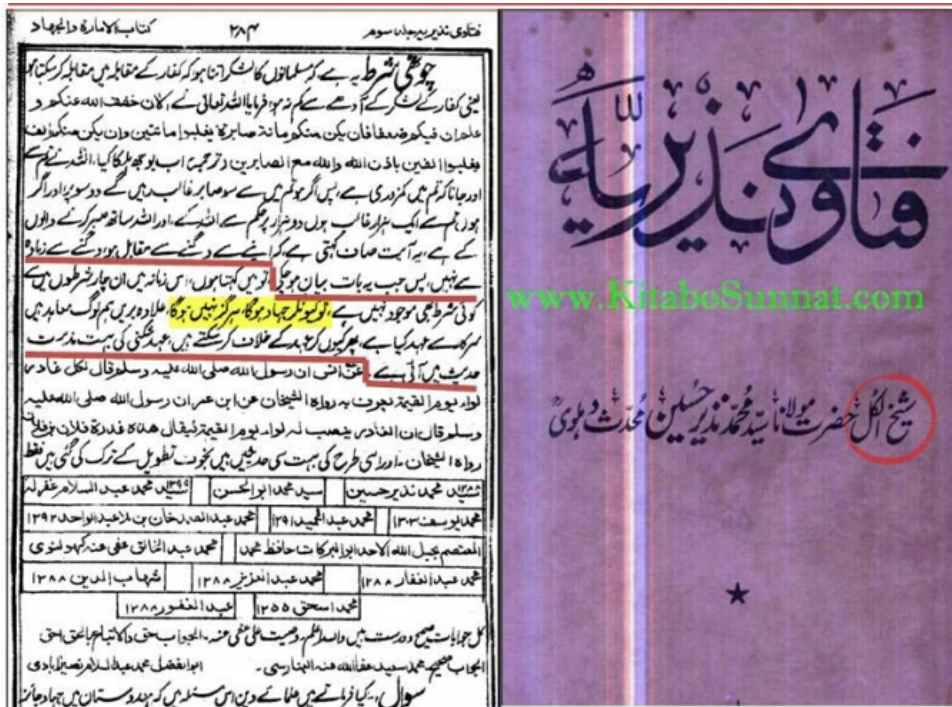 فتاوی نذیریہ جلد سوم
۲۸۴
کتاب الامارة والجهاد
چوتھی شرط یہ ہے کہ مسلمانوں کا لشکر اتنا ہو کہ کفار کے مقابلہ میں مقابلہ کر سکتا ہو
یعنی کفار کے لشکر کے آدھے سے کم نہ ہو، فرمایا اللہ تعالیٰ نے الان خفف الله عنكم و
علم ان فيكم ضعفا فان يكن منكم مائة صابرة يغلبوا مائتين وان يكن منكم الف
يغلبوا الفين باذن الله والله مع الصابرين ترجمہ: اب بوجھ ہلکا کیا، اللہ نے تم سے
اور جانا کہ تم میں کمزوری ہے، پس اگر ہو تم میں سے سو صابر غالب رہیں گے دو سو پر، اور اگر
ہوں تم سے ایک ہزار غالب ہوں دو ہزار پر حکم سے اللہ کے، اور اللہ ساتھ صبر کرنے والوں
کے ہے، یہ آیت صاف کہتی ہے، کہ اپنے سے دگنے سے مقابل ہو، دگنے سے زیادہ
سے نہیں، پس جب یہ بات بیان ہو چکی، تو میں کہتا ہوں، اس زمانہ میں ان چار شرطوں میں سے
کوئی شرط بھی موجود نہیں ہے، تو کیونکر جہاد ہوگا، ہرگز نہیں ہوگا، علاوہ بریں ہم لوگ معاہد ہیں
سرکار سے عہد کیا ہے، پھر کیوں کر عہد کے خلاف کر سکتے ہیں، عہد شکنی کی بہت مذمت
حدیث میں آئی ہے۔ عن انس ان رسول الله صلى الله عليه وسلم قال لكل غادر
لواء يوم القيمة يعرف به رواه الشيخان عن ابن عمر ان رسول الله صلى الله عليه
وسلم قال ان الغادر ينصب له لواء يوم القيمة فيقال هذه غدرة فلان بن فلان
رواه الشيخان۔ اور اسی طرح کی بہت سی حدیثیں ہیں بخوف تطویل کے ترک کی گئی ہیں فقط
سید محمد نذیر حسین
سید محمد ابو الحسن
سید محمد عبد السلام غفرلہ
محمد یوسف ۱۳۰۳
محمد عبد الحمید ۱۲۹۱
۱۲۹۲
المعتصم بحبل الله الاحد ابو البركات حافظ محمد
محمد عبد الغفار ۱۲۸۸
محمد عبد العزیز ۱۲۸۸
شہاب الدین ۱۲۸۸
محمد اسحق ۱۲۵۵
عبد الغفور ۱۲۸۸
کل جوابات صحیح و درست ہیں واللہ اعلم، وصیت علی عفی عنہ۔ الجواب حق
محمد سعید عفا اللہ عنہ البنارسی۔
ابو الفضل محمد عبد السلام نصیرآبادی
سوال:۔ کیا فرماتے ہیں علمائے دین اس مسئلہ میں کہ ہندوستان میں جہاد جائز
فتاویٰ نذیریہ
www.KitaboSunnat.com
شیخ الکل حضرت مولانا سید محمد نذیر حسین محدث دہلوی